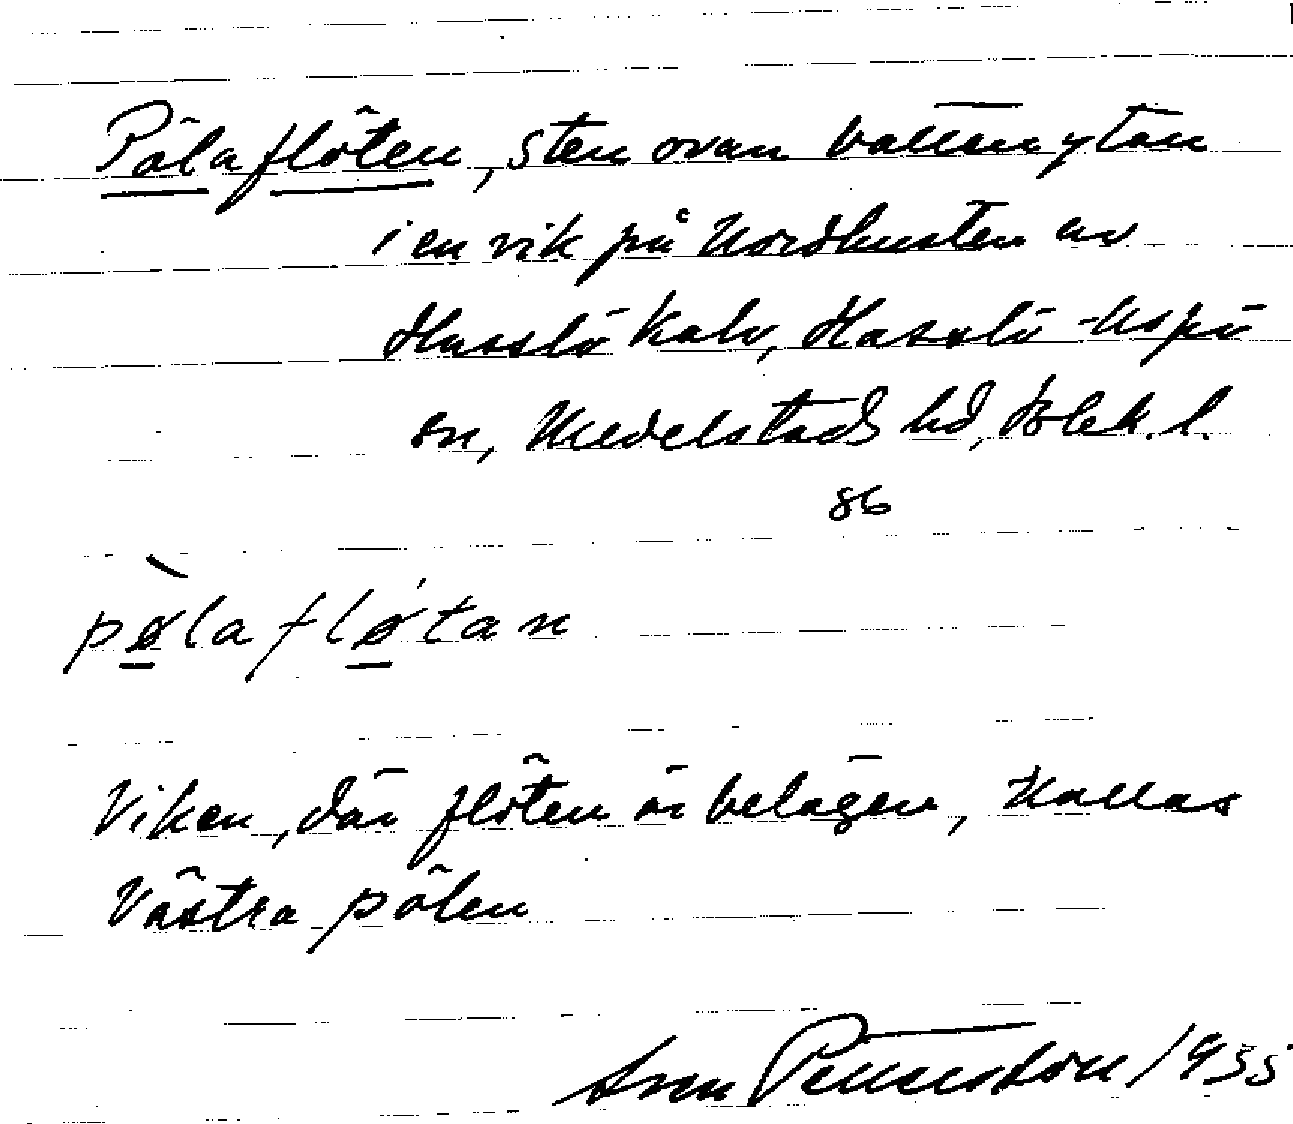 Pölaflöten, sten ovan vattenytan
i en vik på Nordkusten av
Hasslö kalv, Hasslö -Aspö
sn, Medelstads hd, Blek. l.
86
pølafløtan
Viken, där flöten är belägen, kallas
Västra pölen
Sven Pettersson 1935